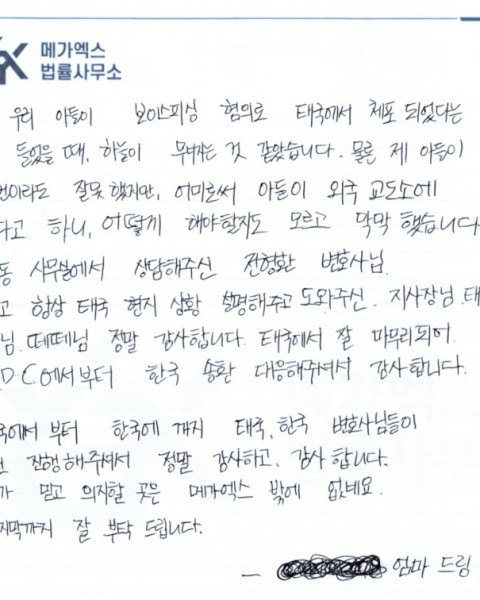 메가엑스
법률사무소
우리 아들이 보이스피싱 혐의로 태국에서 체포 되었다는
들었을 때, 하늘이 무너지는 것 같았습니다. 물론 제 아들이
번이라도 잘못했지만, 어미로써 아들이 외국 교도소에
다고 하니, 어떻게 해야할지도 모르고 막막했습니다
동 사무실에서 상담해주신 전형환 변호사님.
고 항상 태국 현지 상황 설명해주고 도와주신. 지사장님. 태
님. 떼떼님 정말 감사합니다. 태국에서 잘 마무리되어
D·C에서부터 한국 송환 대응해주셔서 감사합니다.
국에서 부터 한국에 까지 태국, 한국 변호사님들이
진행해주셔서 정말 감사하고, 감사합니다.
가 믿고 의지할 곳은 메가엑스 밖에 없네요.
지막까지 잘 부탁 드립니다.
— 엄마 드림